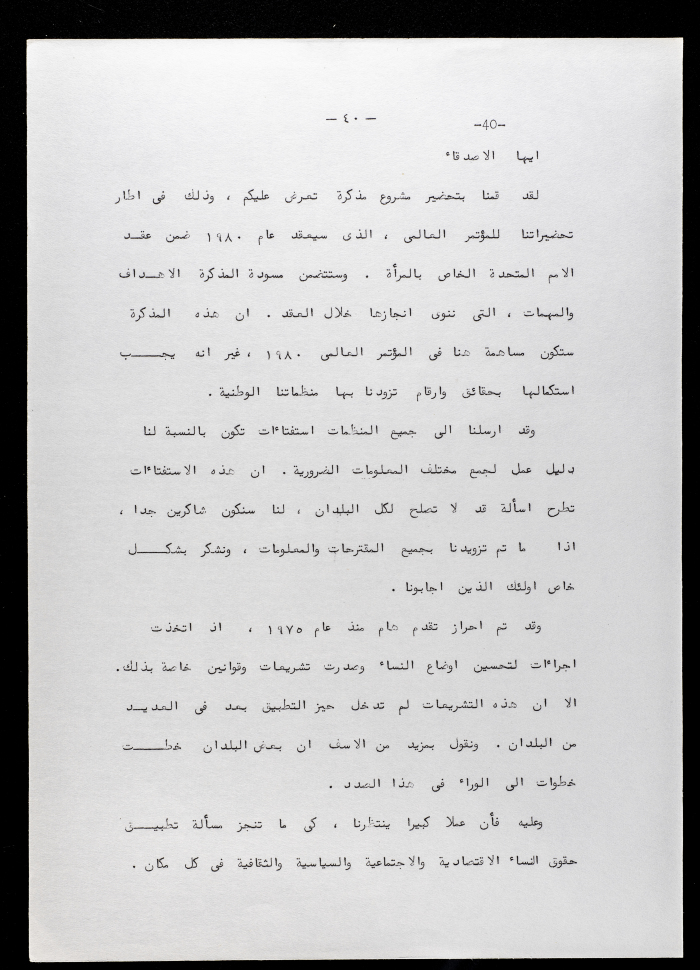 — ٤٠ —
-40-
ايها الاصدقاء
لقد قمنا بتحضير مشروع مذكرة تعرض عليكم ، وذلك فى اطار
تحضيراتنا للمؤتمر العالمى ، الذى سيعقد عام ١٩٨٠ ضمن عقـد
الامم المتحدة الخاص بالمرأة . وستتضمن مسودة المذكرة الاهـداف
والمهمات ، التى ننوى انجازها خلال العقد . ان هذه المذكرة
ستكون مساهمة هنا فى المؤتمر العالمى ١٩٨٠ ، غير انه يجــب
استكمالها بحقائق وارقام تزودنا بها منظماتنا الوطنية .
وقد ارسلنا الى جميع المنظمات استفتاءات تكون بالنسبة لنا
دليل عمل لجمع مختلف المعلومات الضرورية . ان هذه الاستفتاءات
تطرح اسألة قد لا تصلح لكل البلدان ، لنا سنكون شاكرين جدا ،
اذا ما تم تزويدنا بجميع المقترحات والمعلومات ، ونشكر بشكــل
خاص اولئك الذين اجابونا .
وقد تم احراز تقدم هام منذ عام ١٩٧٥ ، اذ اتخذت
اجراءات لتحسين اوضاع النساء وصدرت تشريعات وقوانين خاصة بذلك.
الا ان هذه التشريعات لم تدخل حيز التطبيق بعد فى العديـد
من البلدان . ونقول بمزيد من الاسف ان بعض البلدان خطــت
خطوات الى الوراء فى هذا الصدد .
وعليه فأن عملا كبيرا ينتظرنا ، كى ما تنجز مسألة تطبيــق
حقوق النساء الاقتصادية والاجتماعية والسياسية والثقافية فى كل مكان .